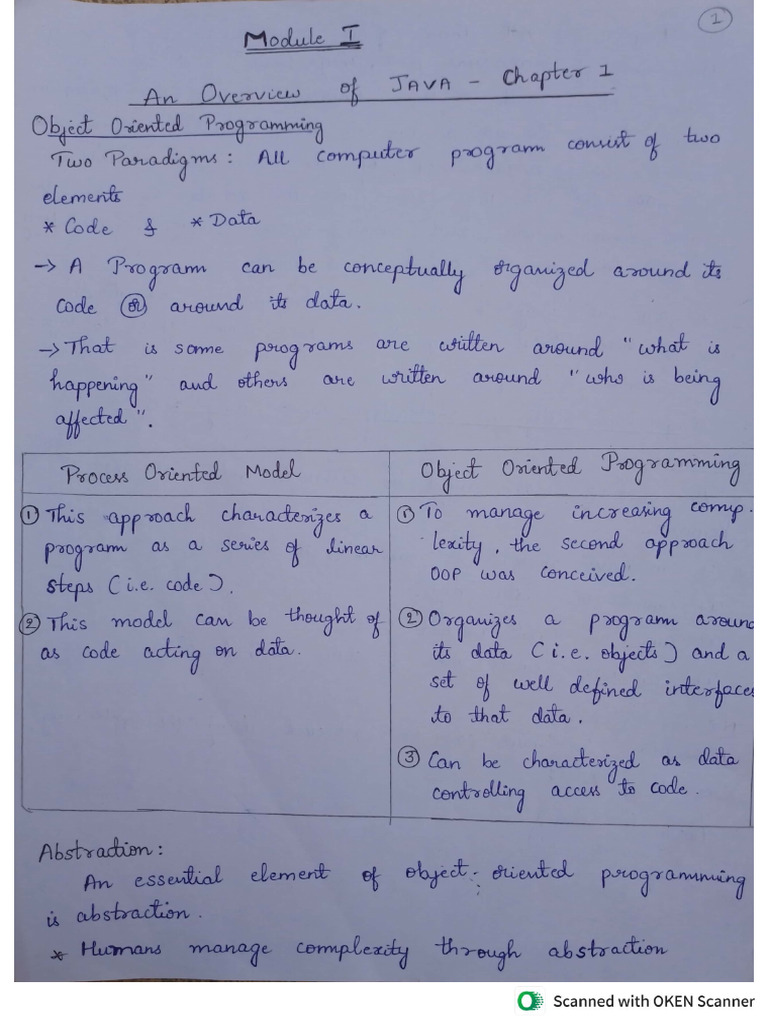 1
Module I
An Overview of JAVA - Chapter 1
Object Oriented Programming
Two Paradigms: All computer program consist of two
elements
* Code & * Data
→ A Program can be conceptually organized around its
code (or) around its data.
→ That is some programs are written around "what is
happening" and others are written around "who is being
affected".
Process Oriented Model
① This approach characterizes a
program as a series of linear
steps (i.e. code).
② This model can be thought of
as code acting on data.
Object Oriented Programming
① To manage increasing comp.
lexity, the second approach
OOP was conceived.
② Organizes a program around
its data (i.e. objects) and a
set of well defined interfaces
to that data.
③ Can be characterized as data
controlling access to code.
Abstraction:
An essential element of object-oriented programming
is abstraction.
* Humans manage complexity through abstraction
Scanned with OKEN Scanner